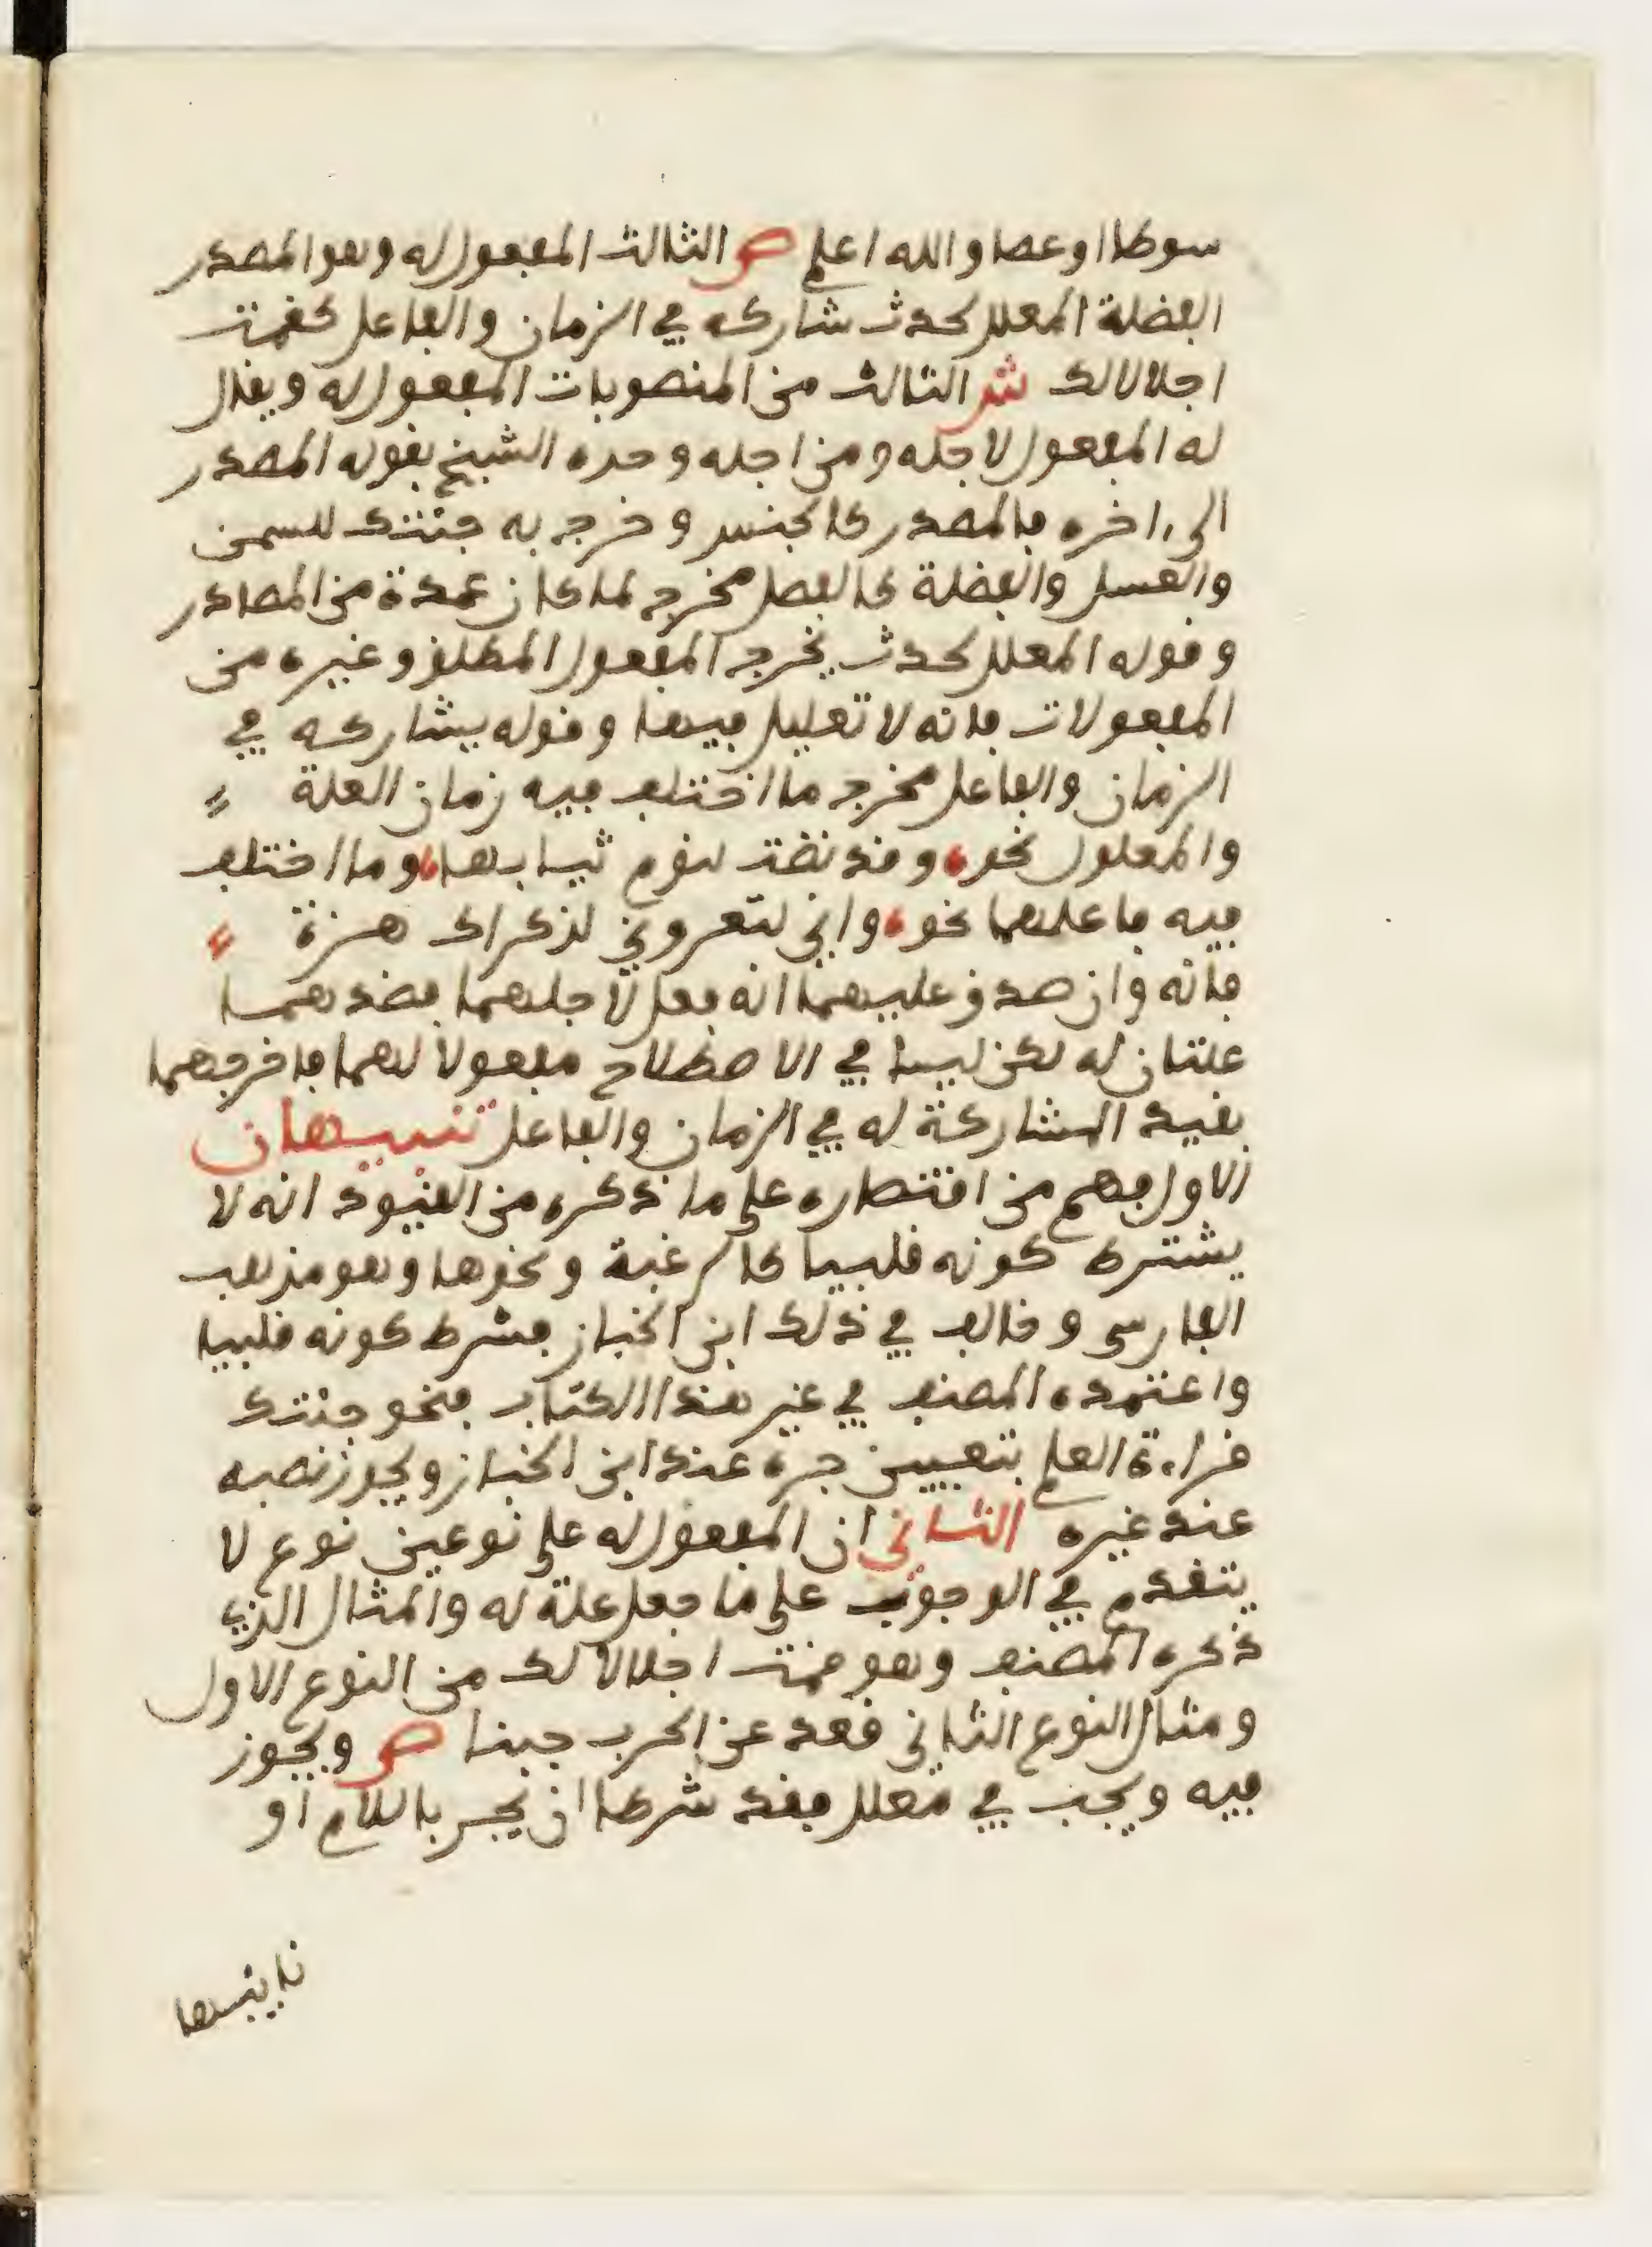 سوطا او عصا والله اعلم ص الثالث المفعول له وهو المصدر
الفضلة المعلل لحدث شاركه في الزمان والفاعل كقمت
اجلالا لك ش الثالث من المنصوبات المفعول له ويقال
له المفعول لاجله ومن اجله وحده الشيخ بقوله المصدر
الى ءاخره فالمصدر كالجنس وخرج به جئتك للسمن
والعسل والفضلة كالفصل مخرج لما كان عمدة من المصادر
وقوله المعلل لحدث يخرج المفعول المطلق وغيره من
المفعولات فانه لا تعليل فيها وقوله يشاركه في
الزمان والفاعل مخرج ما اختلف فيه زمان العلة
والمعلول نحو وقد نضت لنوم ثيابها وما اختلف
فيه فاعلهما نحو واني لتعروني لذكراك هزة
فانه وان صدق عليهما انه فعل لاجلهما فقد هما
علتان له لكن ليسا في الاصطلاح مفعولا لهما فاخرجهما
بقيد المشاركة له في الزمان والفاعل تنبيهان
الاول فهم من اقتصاره على ما ذكره من القيود انه لا
يشترط كونه قلبيا كالرغبة ونحوها وهو مذهب
الفارسي وخالف في ذلك ابن الخباز فشرط كونه قلبيا
واعتمده المصنف في غير هذا الكتاب فنحو جئتك
قراءة العلم بتعيين جره عند ابن الخباز ويجوز نصبه
عند غيره الثاني ان المفعول له على نوعين نوع لا
يتقدم في الوجوب على ما جعل علة له والمثال الذي
ذكره المصنف وهو قمت اجلالا لك من النوع الاول
ومثال النوع الثاني قعد عن الحرب جبنا ص ويجوز
فيه ويجب في معلل فقد شرطا ان يجر باللام او